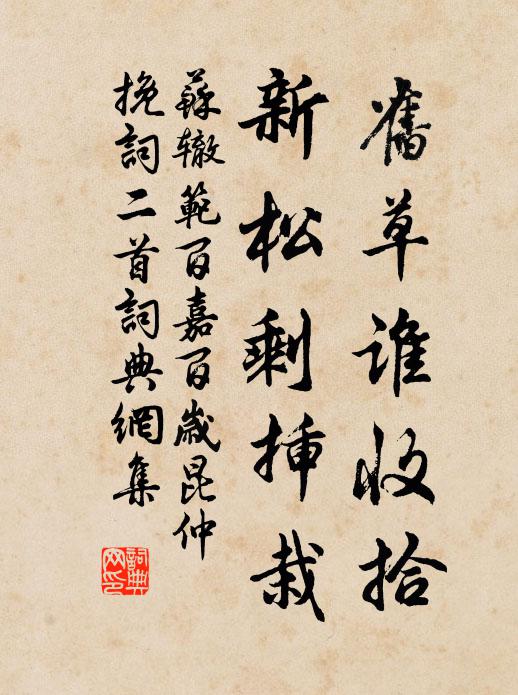 舊草誰收拾
新松剩插栽
蘇辙範百嘉百歲昆仲
挽詞二首詞典網集
詞典网印